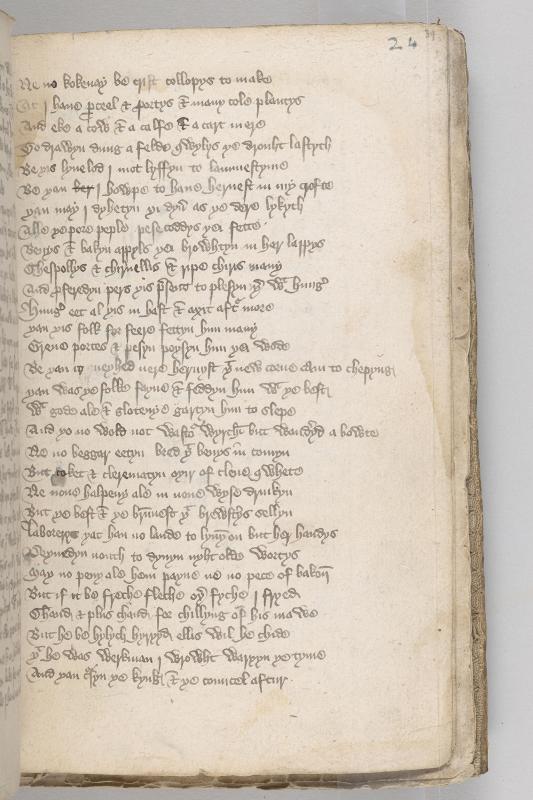 24
Ne no kokenay be crist collopys to make
At I haue percel & portys & many cole plantys
And eke a cow & a calfe & a cart mere
To drawyn dung a felde qwylys ye drouht lastyth
Be yis lyuelod I mot lyffyn to lammestyme
Be yan I howpe to haue heruest in my crofte
yan may I dyhetyn yi dyner as ye dere lykyth
Alle ye pore peple pese coddys yei fette
Benys & bakyn appyls yei browhtyn in her lappys
Chespollys & chiruellis & ripe chiris many
And proferedyn pers yis present to plesyn wt hunger
Hunger eet al yis in hast & axit after more
yan yis folk for feere fettyn hym many
Grene portes & pesyn poysyn hym yei wolde
Be yan it neyhed nere heruyst yt new corne cam to chepyng
yan was ye folke fayne & feddyn hym wt ye best
Wt gode ale & glotenye gartyn hym to slepe
And yo no wold not wastor wyrche but wanderyd a bowte
Ne no beggar eetyn bred yt benys in comyn
But coket & clerematyn oyir of clene qwhete
Ne none halpeny ale in none wyse drinkyn
But ye best & ye brunest yt brewsterys sellyn
Laborerys yat han no lande to lyuyn on but her handys
Deynedyn nouth to dynyn nyht olde wortys
May no peny ale hem payne ne no pece of bakon
But if it be fresche flesche oyr fysche I fryed
Chaud & plus chaud for chillyng of his mawe
But he be hylych hyryyd ellis wil he chide
yt he was werkman I wrowht waryyn ye tyme
And yan cursyn ye kyng & ye counicel aftur